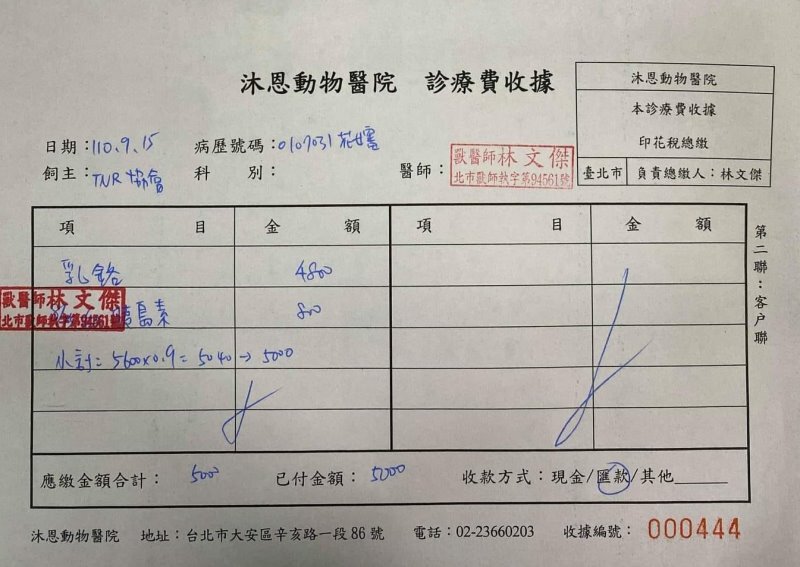 沐恩動物醫院 診療費收據
沐恩動物醫院
本診療費收據
印花稅總繳
臺北市 負責總繳人：林文傑
日期：110.9.15 病歷號碼：0107031
飼主：TNR協會 科別： 醫師：
獸醫師林文傑
北市獸師執字第94561號
項目 金額 項目 金額
乳鉻 4800
獸醫師林文傑
北市獸師執字第94561號
胰島素 800
小計：5600x0.9=5040→5000
應繳金額合計：5000 已付金額：5000 收款方式：現金/匯款/其他______
第二聯：客戶聯
沐恩動物醫院 地址：台北市大安區辛亥路一段86號 電話：02-23660203 收據編號：000444